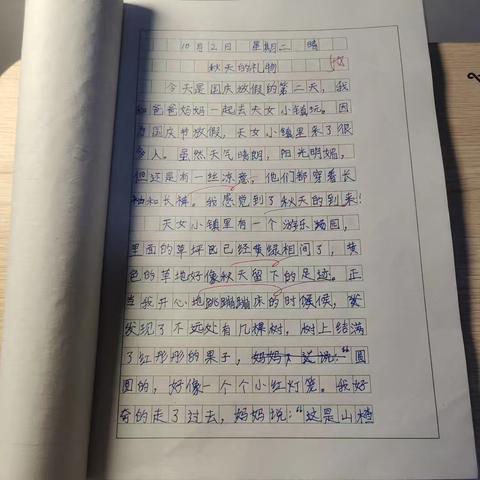 10月2日 星期二 晴
秋天的礼物
今天是国庆放假的第二天，我
和爸爸妈妈一起去天女小镇玩。因
为国庆节放假，天女小镇里来了很
多人。虽然天气晴朗，阳光明媚，
但还是有一丝凉意，他们都穿着长
袖和长裤。我感觉到了秋天的到来！
天女小镇里有一个游乐场园，
里面的草坪已经黄绿相间了，黄
色的草地好像秋天留下的足迹。正
当我开心地跳蹦蹦床的时候，
发现了不远处有几棵树，树上结满
了红彤彤的果子，妈妈，这说：“圆
圆的，好像一个个小红灯笼。我好
奇的走了过去，妈妈说：“这是山楂